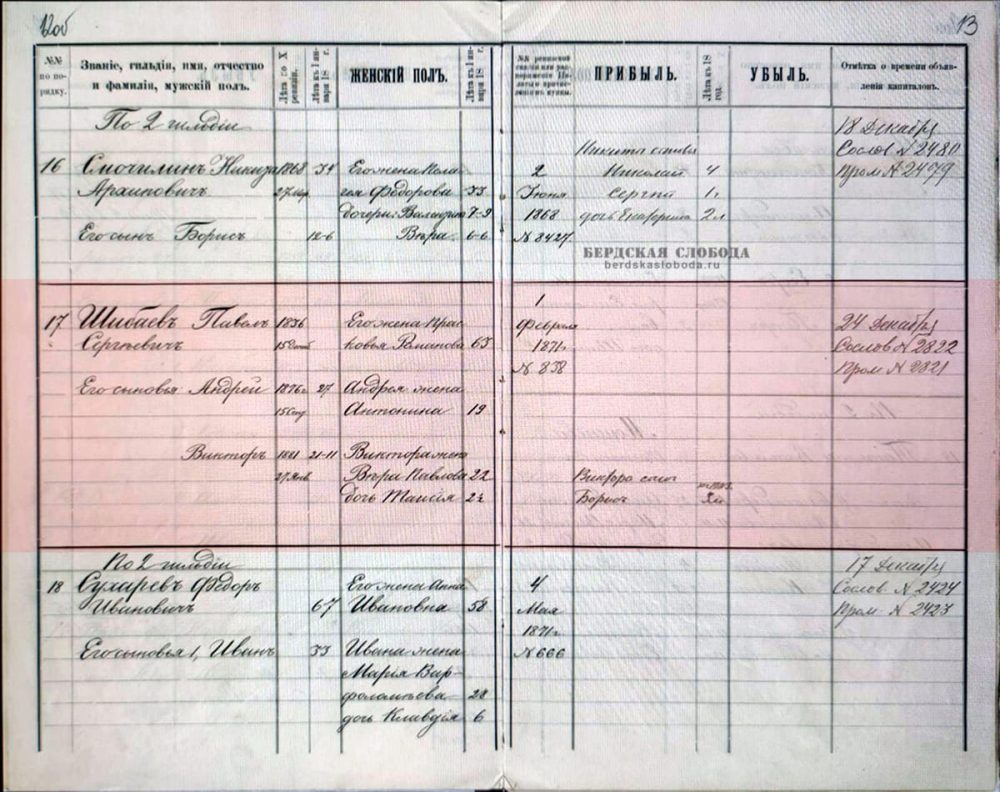 12об
13
№№ по порядку.
Званіе, гильдія, имя, отчество и фамилія, мужскій полъ.
Лѣта по X ревизіи.
Лѣта къ 1 января 18 г.
ЖЕНСКІЙ ПОЛЪ.
Лѣта къ 1 января 18 г.
ПРИБЫЛЬ.
Лѣта къ 18 год.
УБЫЛЬ.
Отмѣтка о времени объявленія капиталовъ.
По 2 гильдіи
18 Декабря
Никита сынъ
Сослов № 2480
16 Смочилинъ Никита 1868 34 Его жена Пела- 2 Николай 4 Пром № 2479
Архиповичъ гея Федорова 33 Іюня Сергей 1 г
дочери: Валентина 7-9 1868 дочь Екатерина 2 л
Его сынъ Борисъ 12-6 Вѣра 6-6 № 3427
БЕРДСКАЯ СЛОБОДА
berdskasloboda.ru
1
17 Шибаевъ Павелъ 1836 Его жена Прас- Февраля 24 Декабря
Сергѣевичъ ковья Романова 63 1871 г Сослов № 2822
№ 838 Пром № 2821
Его сыновья Андрей 1876 г 27 Андрея жена
Антонина 19
Викторъ 1881 21-11 Виктора жена
27 Янв Вѣра Павлова 22 Виктора сынъ
дочь Таисія 2½ Борисъ
По 2 гильдіи 17 Декабря
18 Сухаревъ Федоръ Его жена Анна 4 Сослов № 2424
Ивановичъ 67 Ивановна 58 Мая Пром № 2423
1871 г
Его сыновья 1, Иванъ 33 Ивана жена № 666
Марія Вар-
фоломѣева 28
дочь Клавдія 6